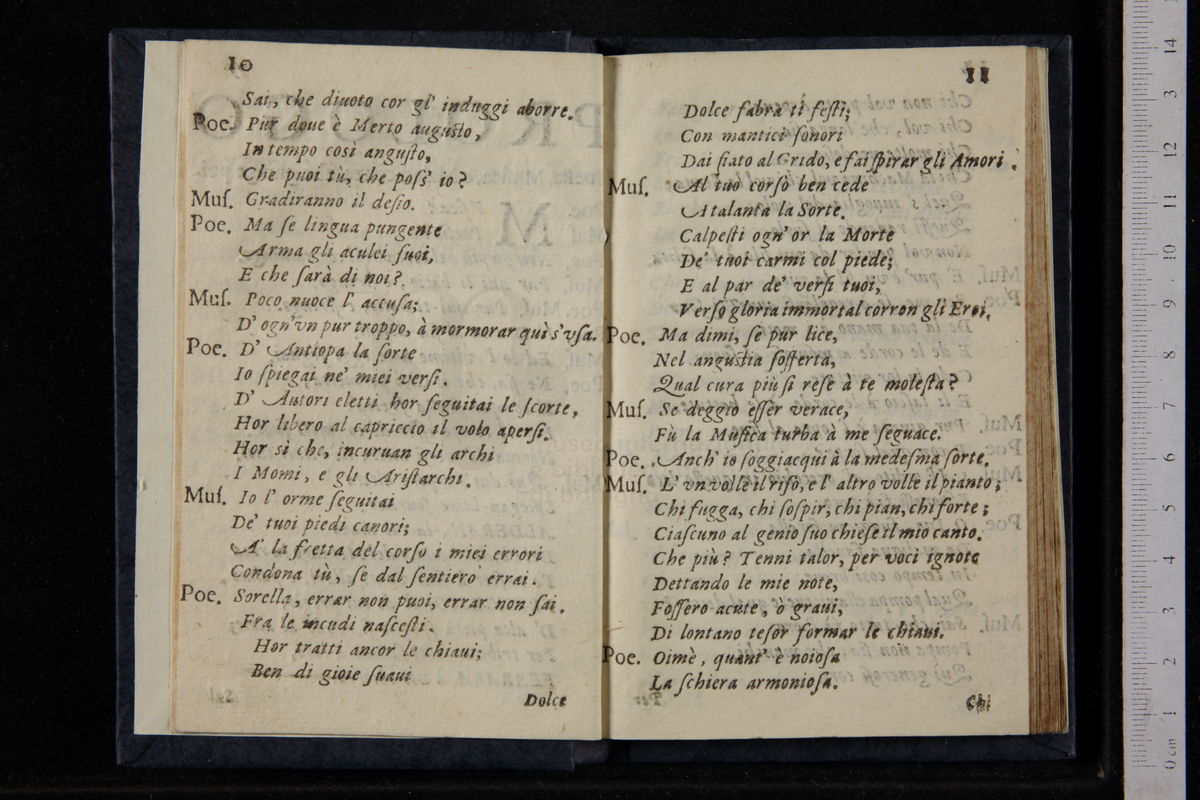 10
Sai, che diuoto cor gl' induggi aborre.
Poe. Pur doue è Merto augusto,
In tempo così angusto,
Che puoi tù, che poss' io?
Mus. Gradiranno il desio.
Poe. Ma se lingua pungente
Arma gli aculei suoi,
E che sarà di noi?
Mus. Poco nuoce l' accusa;
D' ogn' vn pur troppo, à mormorar quì s' vsa.
Poe. D' Antiopa la sorte
Io spiegai ne' miei versi.
D' Autori eletti hor seguitai le scorte,
Hor libero al capriccio il volo apersi.
Hor sì che, incuruan gli archi
I Momi, e gli Aristarchi.
Mus. Io l' orme seguitai
De' tuoi piedi canori;
A' la fretta del corso i miei errori
Condona tù, se dal sentiero errai.
Poe. Sorella, errar non puoi, errar non sai.
Fra le incudi nascesti.
Hor tratti ancor le chiaui;
Ben di gioie suaui
Dolce
11
Dolce fabra ti festi;
Con mantici sonori
Dai fiato al Grido, e fai spirar gli Amori.
Mus. Al tuo corso ben cede
Atalanta la Sorte.
Calpesti ogn' or la Morte
De' tuoi carmi col piede;
E al par de' versi tuoi,
Verso gloria immortal corron gli Eroi.
Poe. Ma dimi, se pur lice,
Nel angustia sofferta,
Qual cura più si rese à te molesta?
Mus. Se deggio esser verace,
Fù la Musica turba à me seguace.
Poe. Anch' io soggiacqui à la medesma sorte.
Mus. L' vn volle il riso, e l' altro volle il pianto;
Chi fugga, chi sospir, chi pian, chi forte;
Ciascuno al genio suo chiese il mio canto.
Che più? Tenni talor, per voci ignote
Dettando le mie note,
Fossero acute, o graui,
Di lontano tesor formar le chiaui.
Poe. Oimè, quant' è noiosa
La schiera armoniosa.
Chi